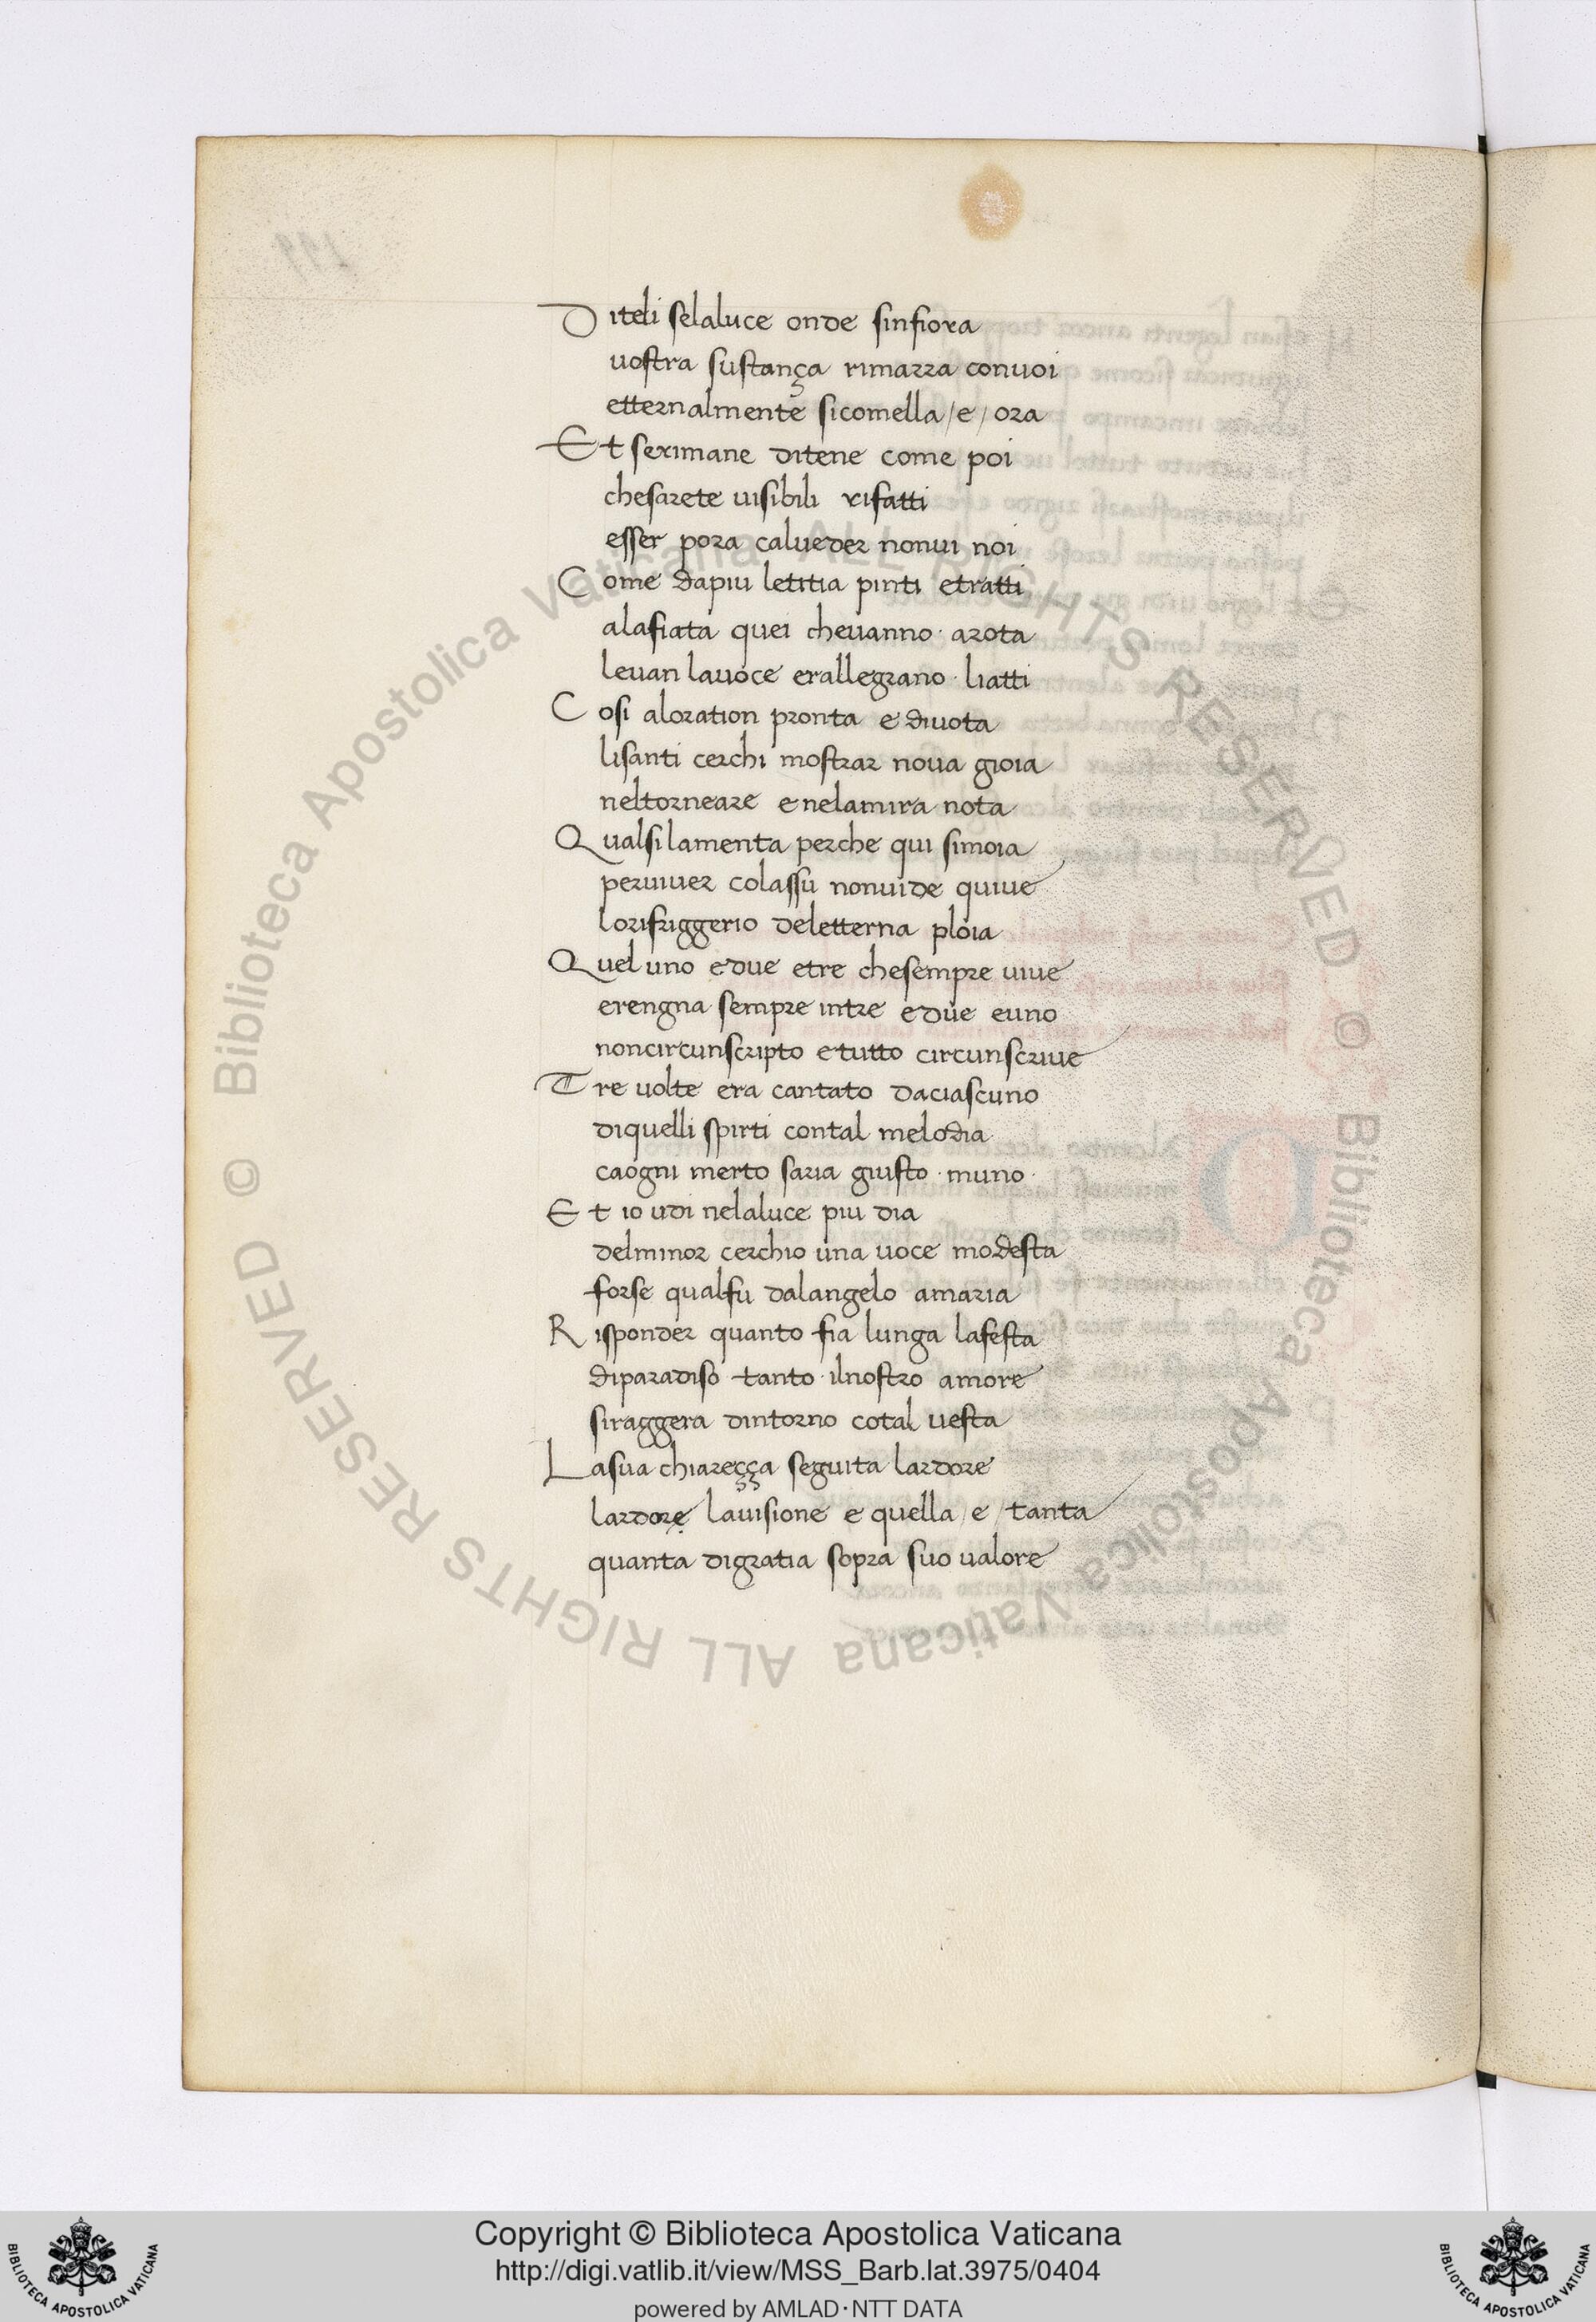 Diteli selaluce onde sinfiora
uostra sustança rimarra conuoi
etternalmente sicomella / e / ora
Et serimane ditene come poi
chesarete uisibili rifatti
esser pora calueder nonui noi
Come dapiu letitia pinti etratti
alafiata quei cheuanno · arota
leuan lauoce erallegrano · liatti
Cosi aloration pronta e diuota
lisanti cerchi mostrar noua gioia
neltorneare enelamira nota
Qualsilamenta perche qui simoia
peruiuer colassu nonuide quiue
lorifriggerio deletterna ploia
Quel uno edue etre chesempre uiue
erengna sempre intre edue euno
noncircunscripto etutto circunscriue
Tre uolte era cantato daciascuno
diquelli spirti contal melodia
caogni merto saria giusto · muno ·
Et io udi nelaluce piu dia
delminor cerchio una uoce modesta
forse qualfu dalangelo amaria
Risponder quanto fia lunga lafesta
diparadiso tanto · ilnostro amore
siraggera dintorno cotal uesta
Lasua chiareçça seguita lardore
lardore lauisione e quella / e / tanta
quanta digratia sopra suo ualore
© Biblioteca Apostolica Vaticana ALL RIGHTS RESERVED © Biblioteca Apostolica Vaticana ALL RIGHTS RESERVED
BIBLIOTECA APOSTOLICA VATICANA
Copyright © Biblioteca Apostolica Vaticana
http://digi.vatlib.it/view/MSS_Barb.lat.3975/0404
powered by AMLAD · NTT DATA
BIBLIOTECA APOSTOLICA VATICANA